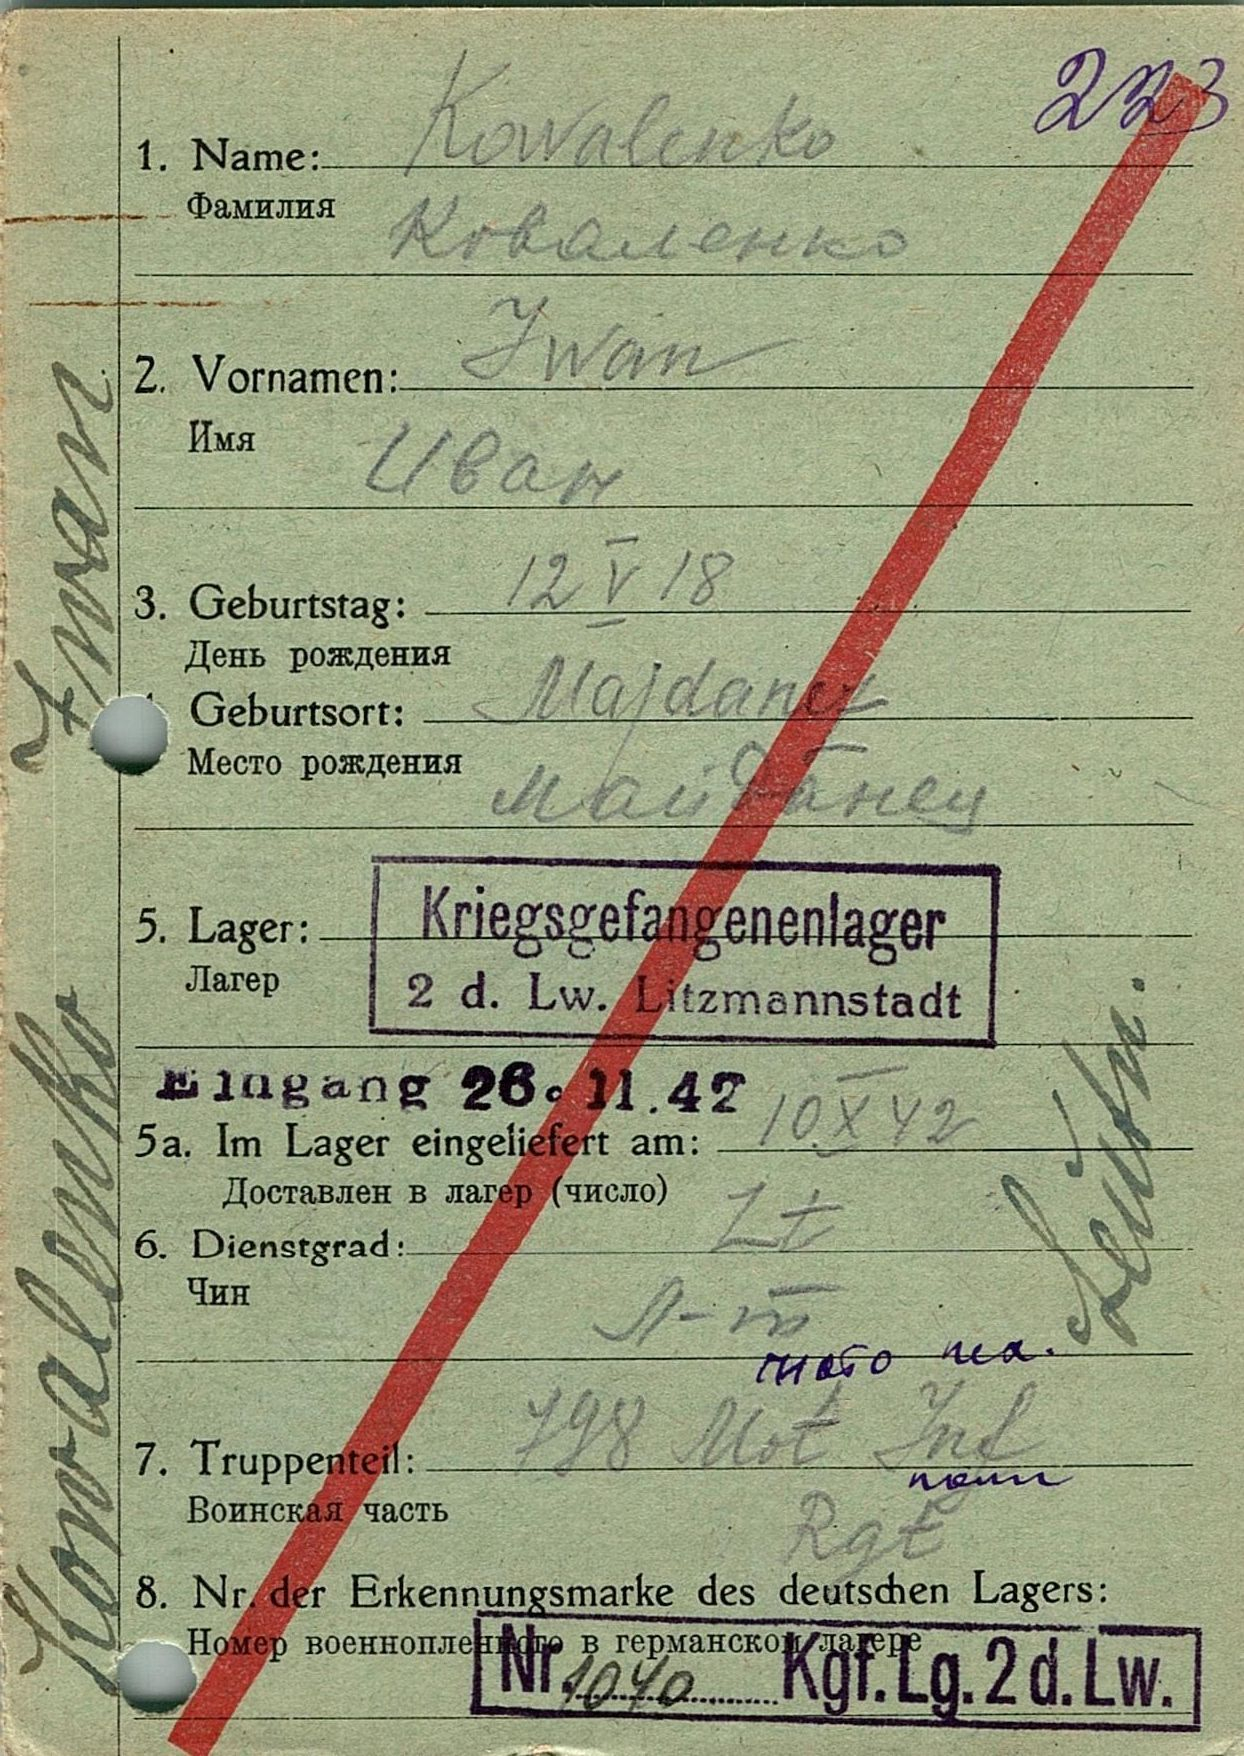 223
1. Name: Kowalenko
Фамилия
Коваленко
2. Vornamen: Iwan
Имя
Иван
3. Geburtstag: 12 V 18
День рождения
Geburtsort: Majdanez
Место рождения
Майданец
5. Lager: Kriegsgefangenenlager
Лагер
2 d. Lw. Litzmannstadt
Eingang 26. 11.42
5a. Im Lager eingeliefert am: 10 X 42
Доставлен в лагер (число)
6. Dienstgrad: Lt
Чин
Л-т
мото
7. Truppenteil: 798 Mot Inf
Воинская часть
полк
Rgt
8. Nr. der Erkennungsmarke des deutschen Lagers:
Номер военнопленного в германском лагере
Nr. 1040 Kgf. Lg. 2 d. Lw.
Kowalenko Iwan
Leutn.